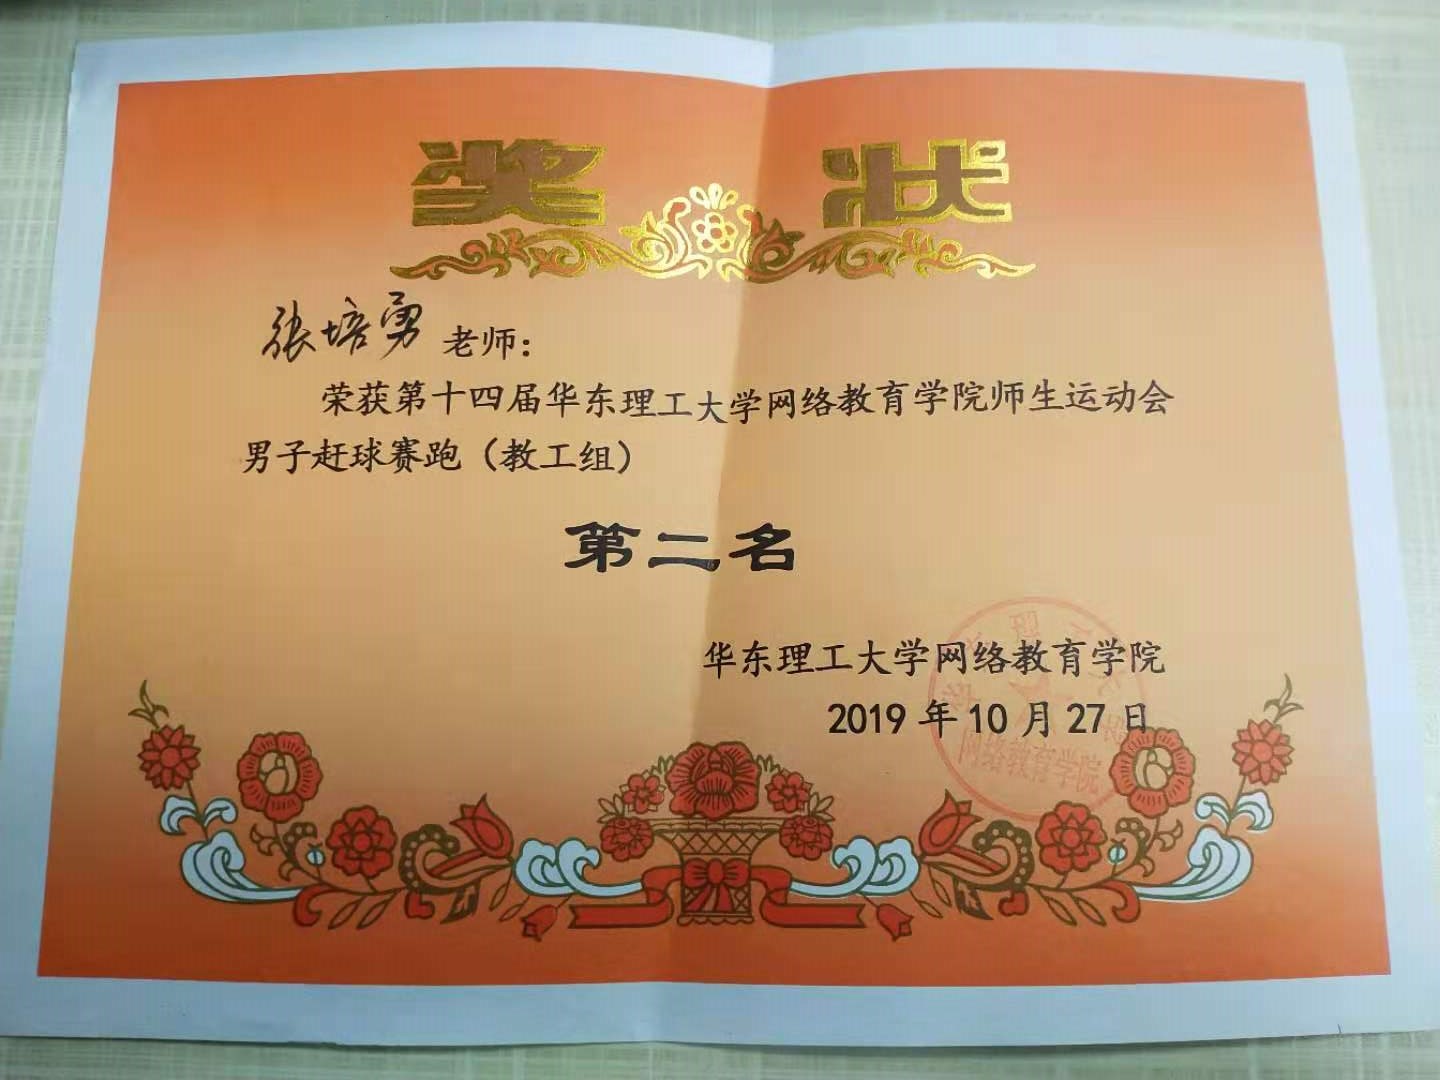 奖状
张培勇老师：
荣获第十四届华东理工大学网络教育学院师生运动会
男子赶球赛跑（教工组）
第二名
华东理工大学网络教育学院
2019年10月27日
网络教育学院